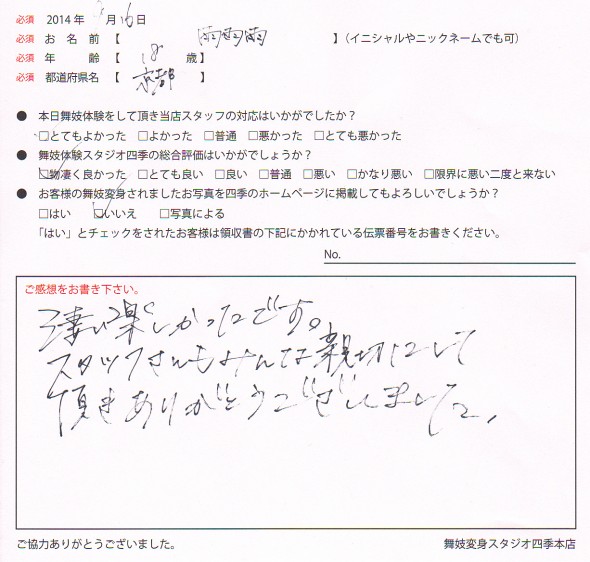 必須 2014年 月16日
必須 お名前【 雨雨雨 】(イニシャルやニックネームでも可)
必須 年齢【 18 歳】
必須 都道府県名【 京都 】
● 本日舞妓体験をして頂き当店スタッフの対応はいかがでしたか？
□とてもよかった □よかった □普通 □悪かった □とても悪かった
● 舞妓体験スタジオ四季の総合評価はいかがでしょうか？
□物凄く良かった □とても良い □良い □普通 □悪い □かなり悪い □限界に悪い二度と来ない
● お客様の舞妓変身されましたお写真を四季のホームページに掲載してもよろしいでしょうか？
□はい □いいえ □写真による
「はい」とチェックをされたお客様は領収書の下記にかかれている伝票番号をお書きください。
No.
ご感想をお書き下さい。
凄い楽しかったです。
スタッフさんもみんな親切にして
頂きありがとうございました。
ご協力ありがとうございました。
舞妓変身スタジオ四季本店